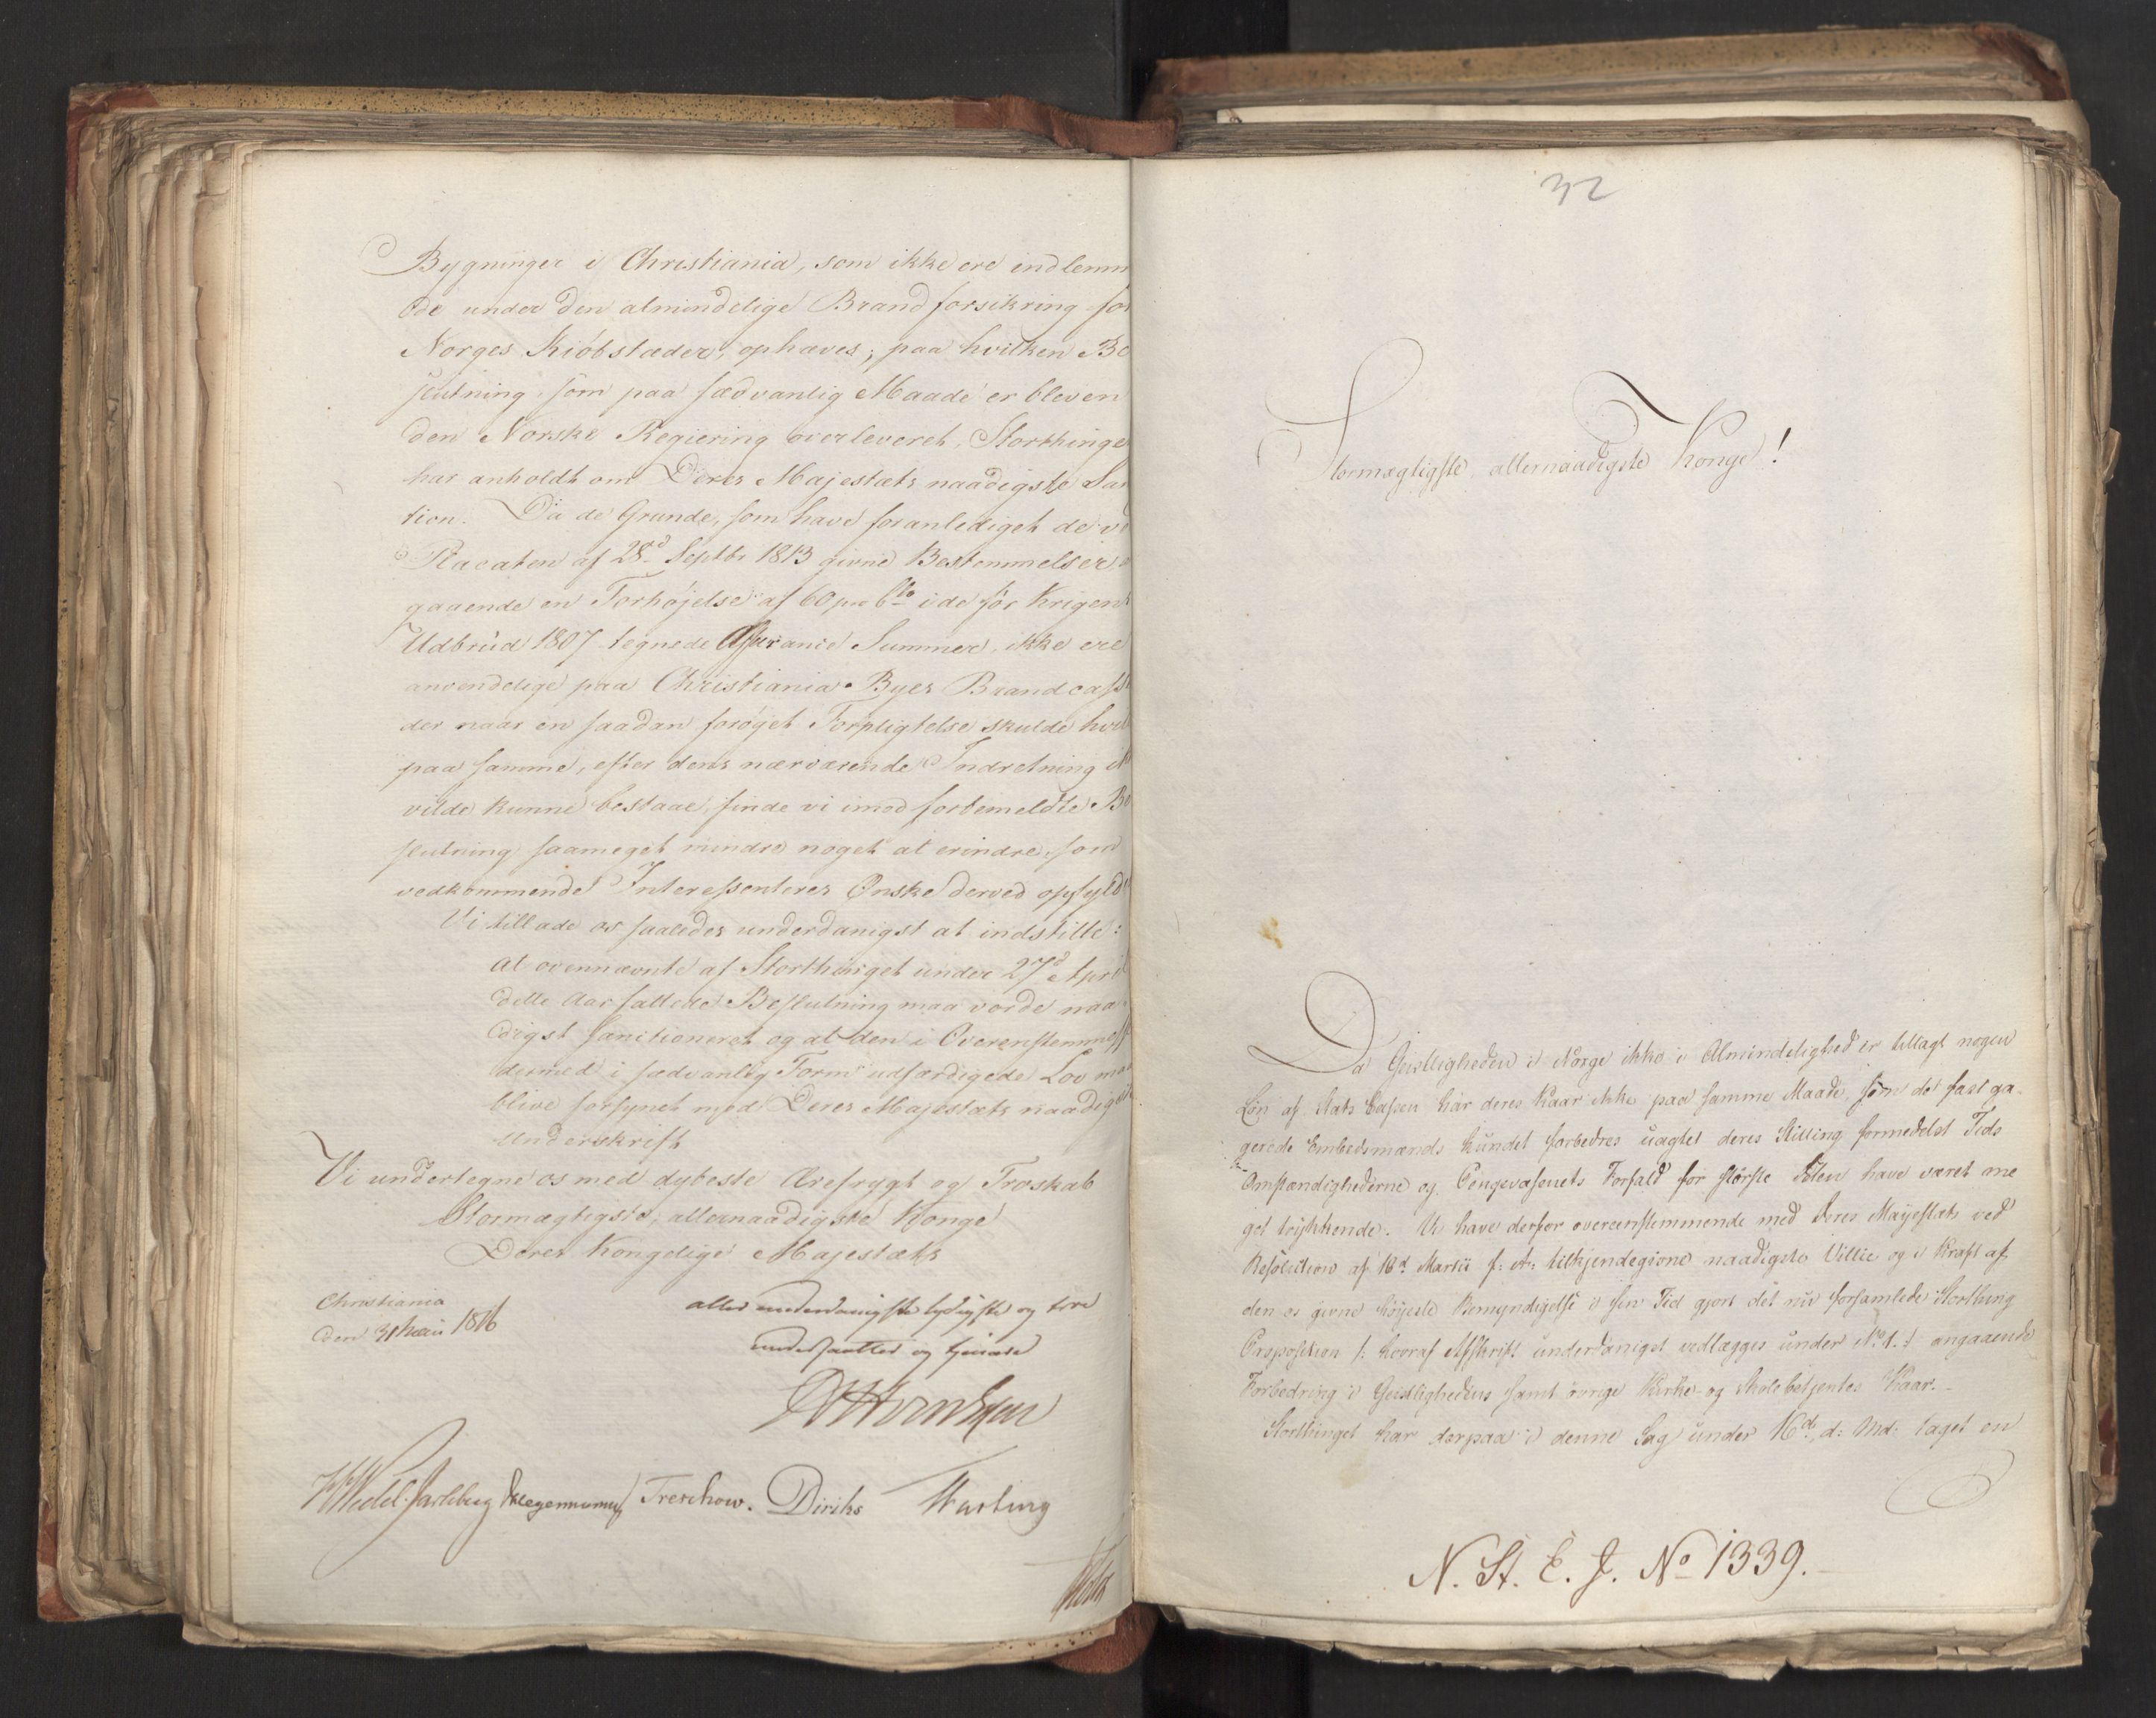 Bygninger i Christiania, som ikke ere indlemm
de under den almindelige Brandforsikring for
Norges Kiöbstæder, ophæves; paa hvilken Be
slutning, som paa sædvanlig Maade er bleven
den Norske Regiering overleveret, Storthinge
har anholdt om Deres Majestæts naadigste San
tion. Da de Grunde, som have foranlediget de v
Placaten af 28d Septbr 1813 givne Bestemmelser
gaaende en Forhöjelse af 60 pro Cto i de för Krigens
Udbrud 1807 tegnede Assurance Summer, ikke ere
anvendelige paa Christiania Byes Brandcasse
der naar en saadan foröget Forpligtelse skulde hvil
paa samme, efter dens nærværende Indretning ik
vilde kunne bestaae, finde vi imod forbemeldte Be
slutning saameget mindre noget at erindre, som
vedkommende Interessenteres Önske derved opfyld
Vi tillade os saaledes underdanigst at indstille:
at ovennævnte af Storthinget under 27d April
dette Aar fattede Beslutning maa vorde naa
digst sanctioneret og at den i Overenstemmelse
dermed i sædvanlig Form udfærdigede Lov maa
blive forsynet med Deres Majestæts naadigste
Underskrift
Vi undertegne os med dybeste Ærefrygt og Troskab
Stormægtigste, allernaadigste Konge
Deres Kongelige Majestæts
Christiania
den 31 Maii 1816
aller underdanigste lydigste og troe
undersaatter og tjenere
HWedel-Jarlsberg Treschow. Diriks
32
Stormægtigste, allernaadigste Konge!
Da Geistligheden i Norge ikke i Almindelighed er tillagt nogen
Lön af Stats Cassen har deres Kaar ikke paa samme Maade, som de fast ga-
gerede Embedsmænds kundet forbedres uagtet deres Stilling formedelst Tids
Omstændighederne og Pengevæsenets Forfald for störste Delen have været me
get trykkende. Vi have derfor overeenstemmende med Deres Majestæts ved
Resolution af 16d Martii f: A: tilkjendegivne naadigste Villie og i Kraft af
den os givne höjeste Bemyndigelse i sin Tid gjort det nu forsamlede Storthing
Proposition /: hvoraf Afskrift underdanigst vedlægges under No 1. :/ angaaende
Forbedring i Geistlighedens samt övrige Kirke- og Skolebetjentes Kaar.-
Storthinget har derpaa i denne Sag under 16d d: Md: taget en
N. St. E. J. No 1339.